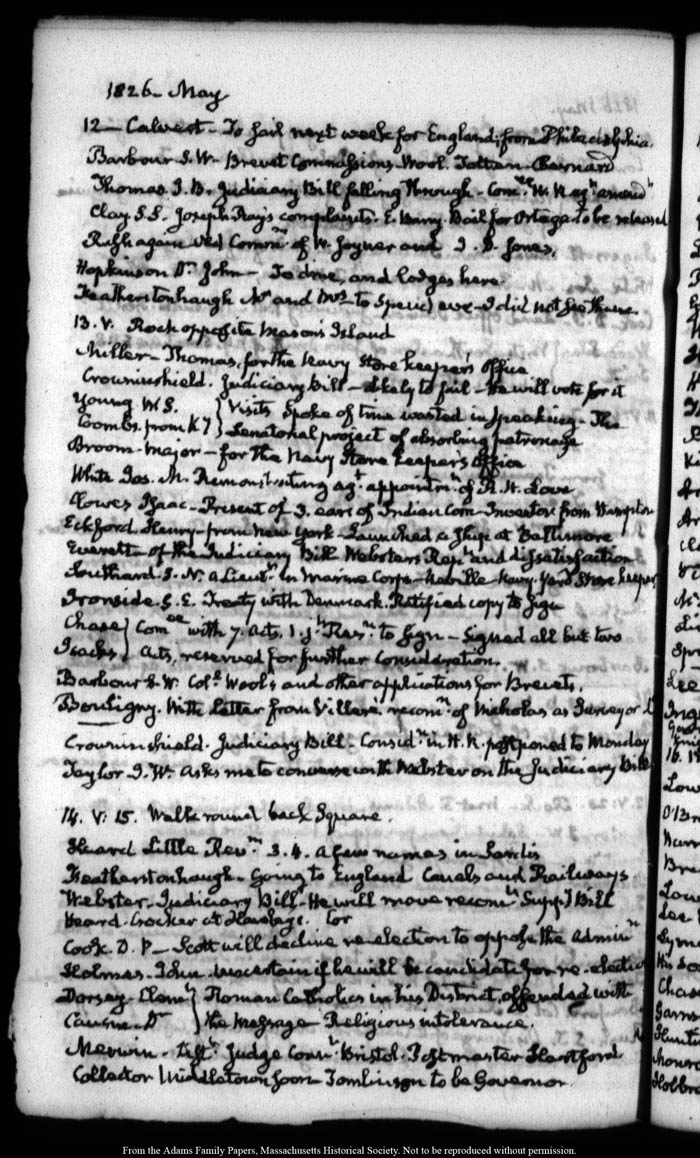 1826 – May
12 – Calvert – To sail next week for England from Philadelphia.
Barbour S. W. Brevet Commissions – Wool. Totten. Bernard
Thomas. J. B. Judiciary Bill falling through – Com.ee
Clay S. S. Joseph Ray's complaints. E. Barry. Bail for Ortega to be released
again Com.n of W. Joyner and J. D. Jones.
Hopkinson Dr. John – To dine, and lodges here
Featherstonhaugh Mr and Mrs to Spend eve – I did not see them
13. V. Rock opposite Mason's Island
Miller – Thomas, for the Navy Store keeper's Office
Crowninshield. Judiciary Bill – likely to fail – He will vote for it
Young W. S. } Visits Spoke of time wasted in speaking – The
Coombs. from Ky } Senatorial project of absorbing patronage
Broom. Major – for the Navy Store keeper's Office
White Jos. M. Remonstrating agt appointmt of R. H. Love
Clowes Isaac – Present of 3. ears of Indian Corn – Investor from Hampston
Eckford Henry – from New York – Launched a Ship at Baltimore
Everett – of the Judiciary Bill. Webster's Rept and dissatisfaction
Southard. S. N. a Lieutt in Marine Corps – Navy. Yard Store keeper
Ironside. G. E. Treaty with Denmark. Ratified copy to sign
Chase } Comee with 7. Acts, 1. jt Resn to sign – Signed all but two
Isacks } Acts, reserved for further consideration.
Barbour S. W. Coll Wool's and other applications for Brevets.
Bouligny. With Letter from Villere. recomn of Nicholas as Surveyor
Crowninshield. Judiciary Bill – Considn in H. R. postponed to Monday
Taylor J. W. asks me to converse with Webster on the Judiciary Bill
14. V: 15. Walk round back Square.
Heard Little Revn 3. 4. a few names in Sardis
Featherstonhaugh – Going to England Canals and Railways
Webster. Judiciary Bill – He will move Suppl Bill
Heard. Crocker at
Cook. D. P – Scott will decline re-election to oppose the Adminn
Holmes. John. uncertain if he will be candidate for re-election
Dorsey. Clemt } Roman Catholics in his District, offended with
Causin. Dr } the Message – Religious intolerance.
Merwin. Judge Bristol. Postmaster Hartford
Collector Middletown soon Tomlinson to be Governor
From the Adams Family Papers, Massachusetts Historical Society. Not to be reproduced without permission.